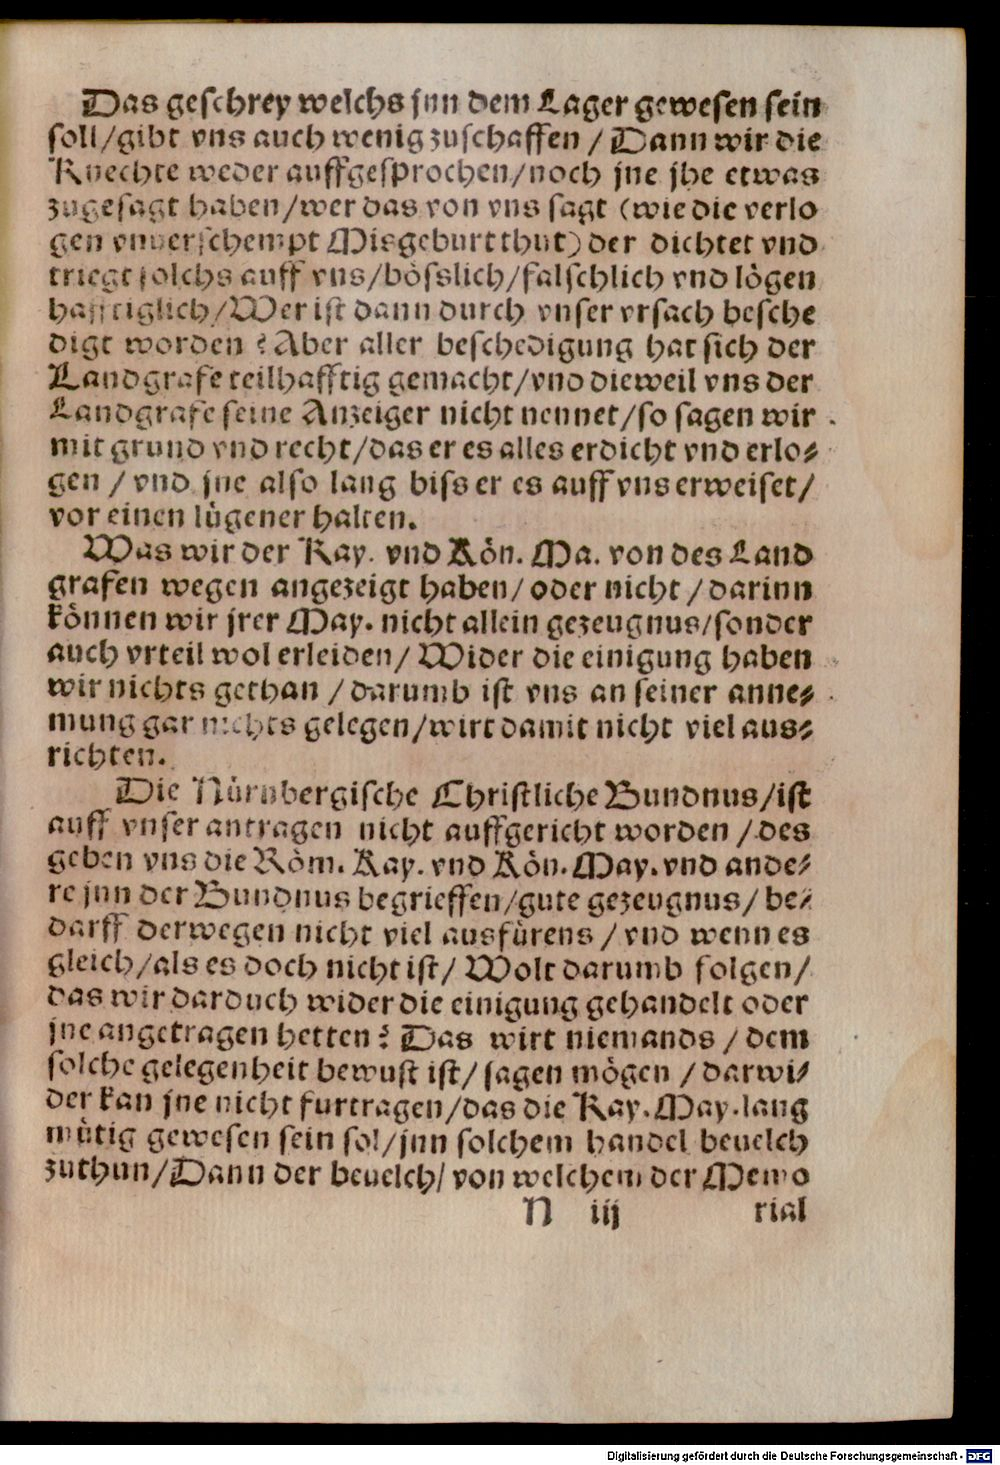 Das geschrey welchs jnn dem Lager gewesen sein
soll/gibt vns auch wenig zuschaffen / Dann wir die
Knechte weder auffgesprochen/noch jne jhe etwas
zugesagt haben/wer das von vns sagt (wie die verlo
gen vnuerschempt Misgeburt thut) der dichtet vnd
triegt solchs auff vns/bösslich/falschlich vnd lögen
hafftiglich/Wer ist dann durch vnser vrsach besche
digt worden ? Aber aller beschedigung hat sich der
Landgrafe teilhafftig gemacht/vnd dieweil vns der
Landgrafe seine Anzeiger nicht nennet/so sagen wir
mit grund vnd recht/das er es alles erdicht vnd erlo⸗
gen / vnd jne also lang biss er es auff vns erweiset/
vor einen lügener halten.
Was wir der Kay. vnd Kön. Ma. von des Land
grafen wegen angezeigt haben/oder nicht / darinn
können wir jrer May. nicht allein gezeugnus/sonder
auch vrteil wol erleiden/ Wider die einigung haben
wir nichts gethan / darumb ist vns an seiner anne⸗
mung gar nichts gelegen/wirt damit nicht viel aus⸗
richten.
Die Nürnbergische Christliche Bundnus/ist
auff vnser antragen nicht auffgericht worden / des
geben vns die Röm. Kay. vnd Kön. May. vnd ande⸗
re jnn der Bundnus begrieffen/gute gezeugnus/ be⸗
darff derwegen nicht viel ausfürens / vnd wenn es
gleich/als es doch nicht ist/ Wolt darumb folgen/
das wir darduch wider die einigung gehandelt oder
jne angetragen hetten ? Das wirt niemands / dem
solche gelegenheit bewust ist/ sagen mögen / darwi⸗
der kan jne nicht furtragen/das die Kay. May. lang
mütig gewesen sein sol/jnn solchem handel beuelch
zuthun/Dann der beuelch/ von welchem der Memo
N iij rial
Digitalisierung gefördert durch die Deutsche Forschungsgemeinschaft - DFG